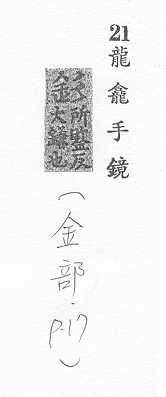 21 龍龕手鏡
所監反
大鎌也
(金部·P.17)